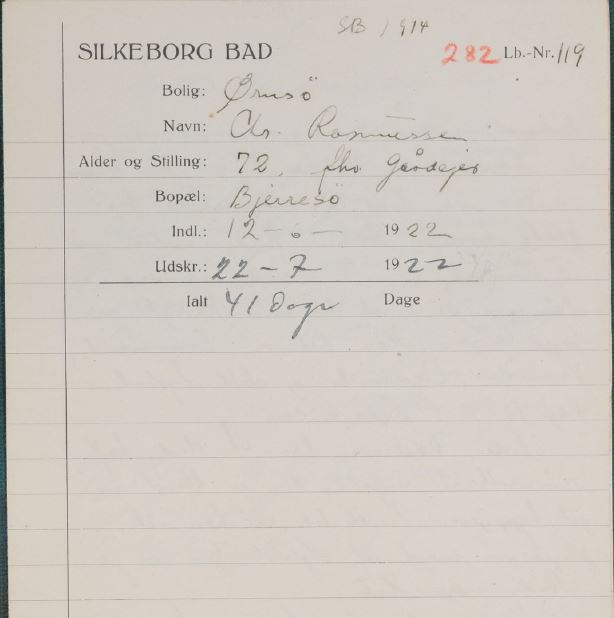 SB 1914
SILKEBORG BAD
282 Lb.-Nr. 119
Bolig: Ørnsö
Navn: Chr. Rasmussen
Alder og Stilling: 72, fhv. Gårdejer
Bopæl: Bjerresö
Indl.: 12 - 6 - 1922
Udskr.: 22 - 7 1922
Ialt 41 Dage Dage